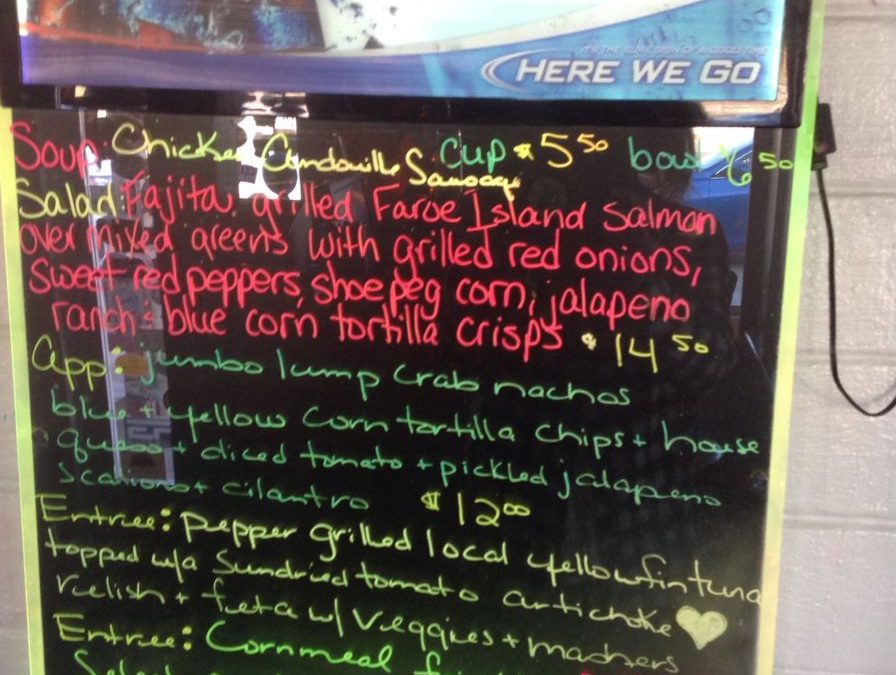 IT'S THE SURE SIGN OF A GOOD TIME
HERE WE GO
Soup: Chicken Andouille Sausage cup $5 50 bowl $6 50
Salad: Fajita grilled Faroe Island Salmon
over mixed greens with grilled red onions,
Sweet red peppers, shoepeg corn, jalapeno
ranch & blue corn tortilla crisps $14 50
App: jumbo lump crab nachos
blue + yellow corn tortilla chips + house
queso + diced tomato + pickled jalapeno
scallions + cilantro $12 00
Entree: pepper grilled local yellowfin tuna
topped w/a Sundried tomato artichoke
relish + feta w/ veggies + mashers
Entree: Cornmeal